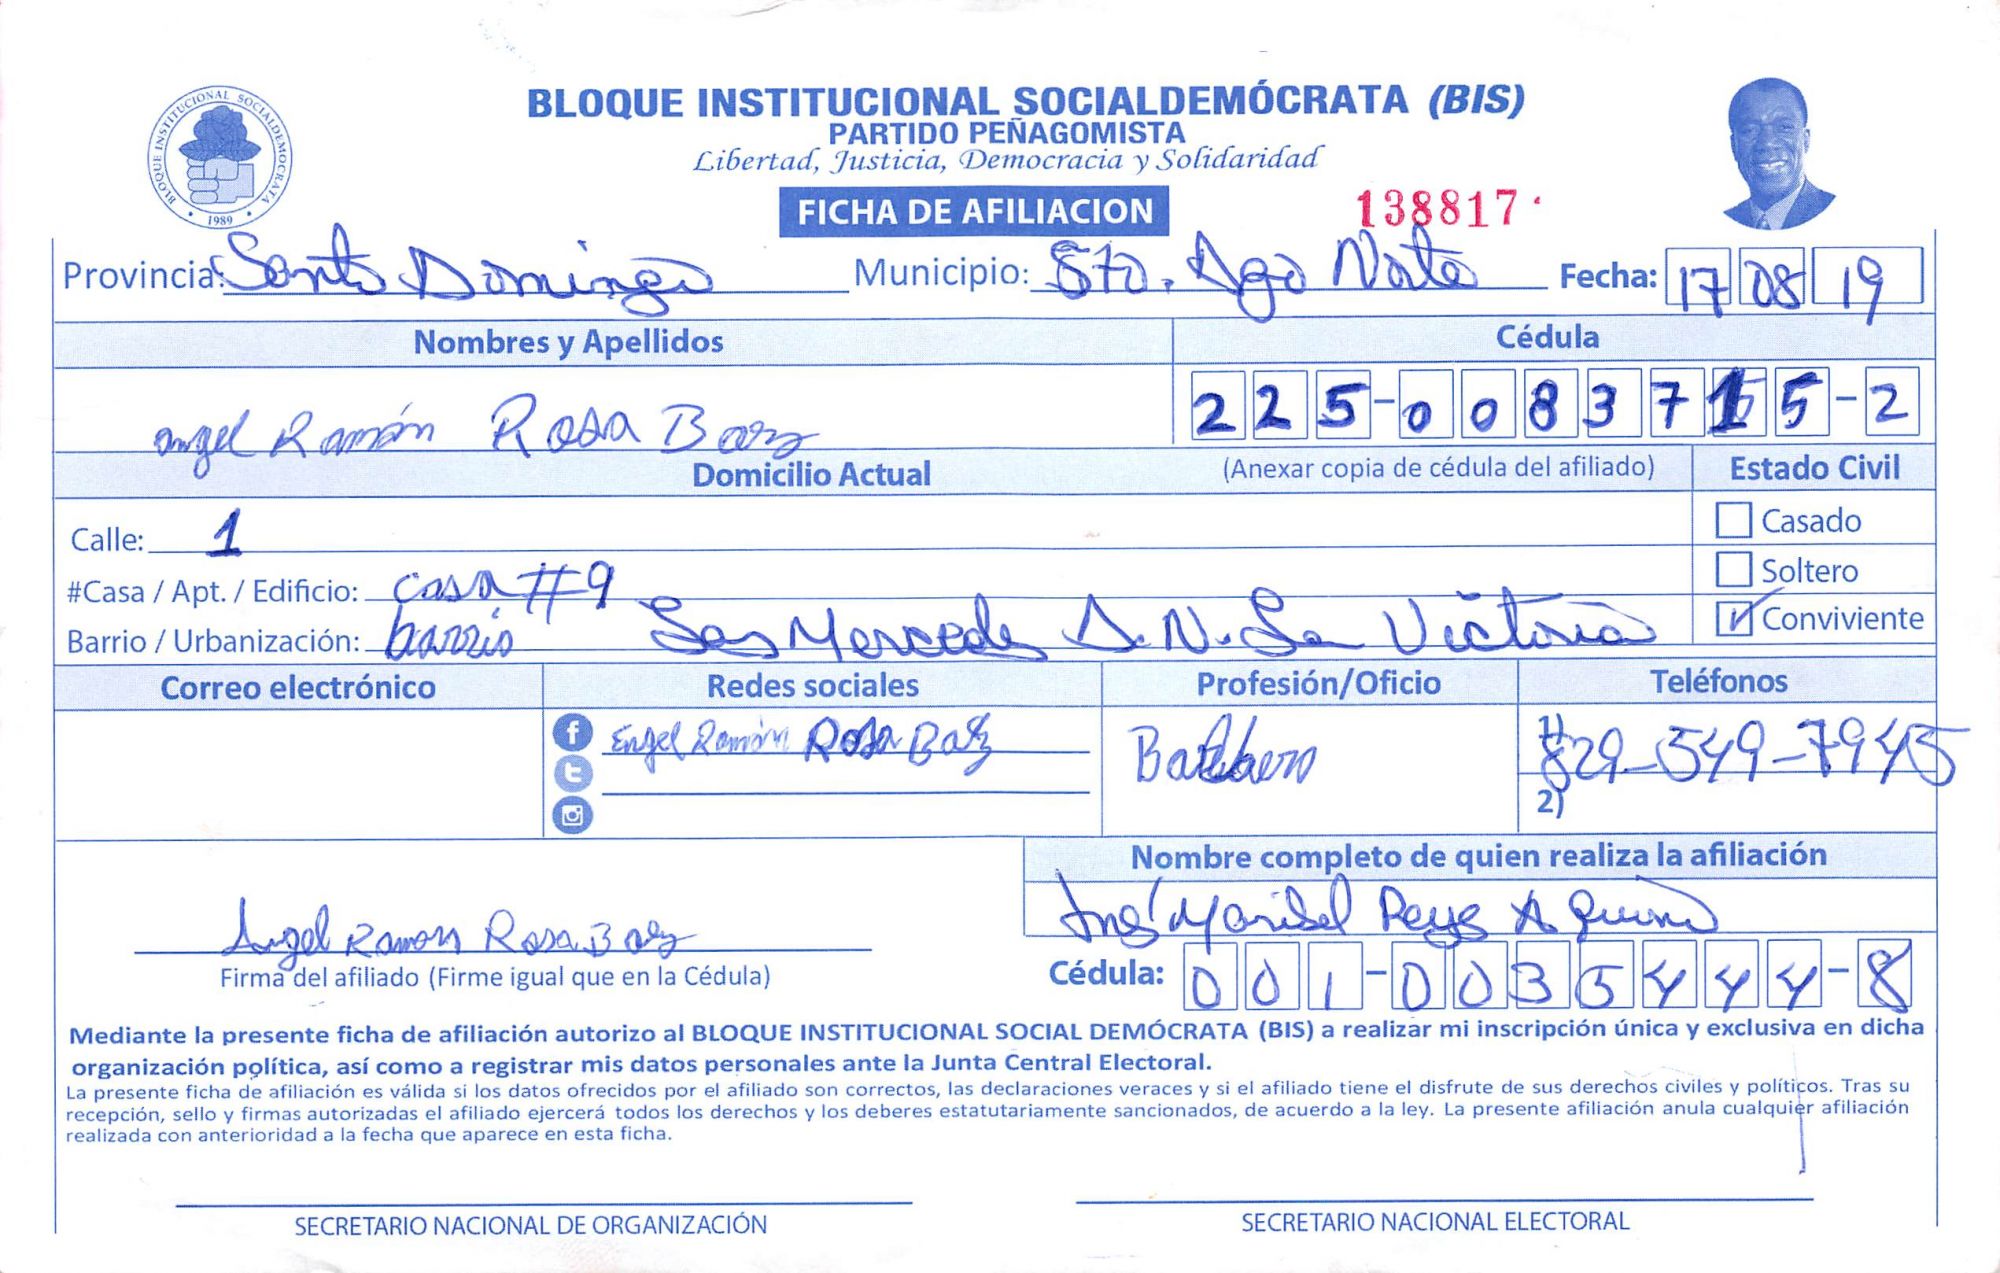 BLOQUE INSTITUCIONAL SOCIALDEMÓCRATA (BIS)
PARTIDO PEÑAGOMISTA
Libertad, Justicia, Democracia y Solidaridad
BLOQUE INSTITUCIONAL SOCIALDEMOCRATA
1989
FICHA DE AFILIACION
138817
Provincia: Santo Domingo Municipio: Sto. Dgo Norte Fecha: 17 08 19
Nombres y Apellidos Cédula
Angel Ramón Rosa Baez 225-0083715-2
Domicilio Actual (Anexar copia de cédula del afiliado) Estado Civil
Calle: 1
Casado
#Casa / Apt. / Edificio: casa #9
Soltero
Barrio / Urbanización: barrio Las Mercedes S.D.N. La Victoria
Conviviente
Correo electrónico Redes sociales Profesión/Oficio Teléfonos
Engel Ramón Rosa Baez Barbero 1) 829-549-7945
2)
Nombre completo de quien realiza la afiliación
Ing. Marisel Reyes Aquino
Angel Ramon Rosa Baez
Firma del afiliado (Firme igual que en la Cédula)
Cédula: 001-0035444-8
Mediante la presente ficha de afiliación autorizo al BLOQUE INSTITUCIONAL SOCIAL DEMÓCRATA (BIS) a realizar mi inscripción única y exclusiva en dicha
organización política, así como a registrar mis datos personales ante la Junta Central Electoral.
La presente ficha de afiliación es válida si los datos ofrecidos por el afiliado son correctos, las declaraciones veraces y si el afiliado tiene el disfrute de sus derechos civiles y políticos. Tras su
recepción, sello y firmas autorizadas el afiliado ejercerá todos los derechos y los deberes estatutariamente sancionados, de acuerdo a la ley. La presente afiliación anula cualquier afiliación
realizada con anterioridad a la fecha que aparece en esta ficha.
SECRETARIO NACIONAL DE ORGANIZACIÓN SECRETARIO NACIONAL ELECTORAL